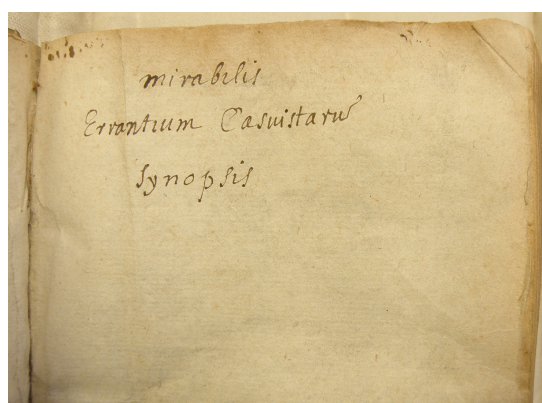 mirabilis
Errantium Casuistarũ
Synopsis